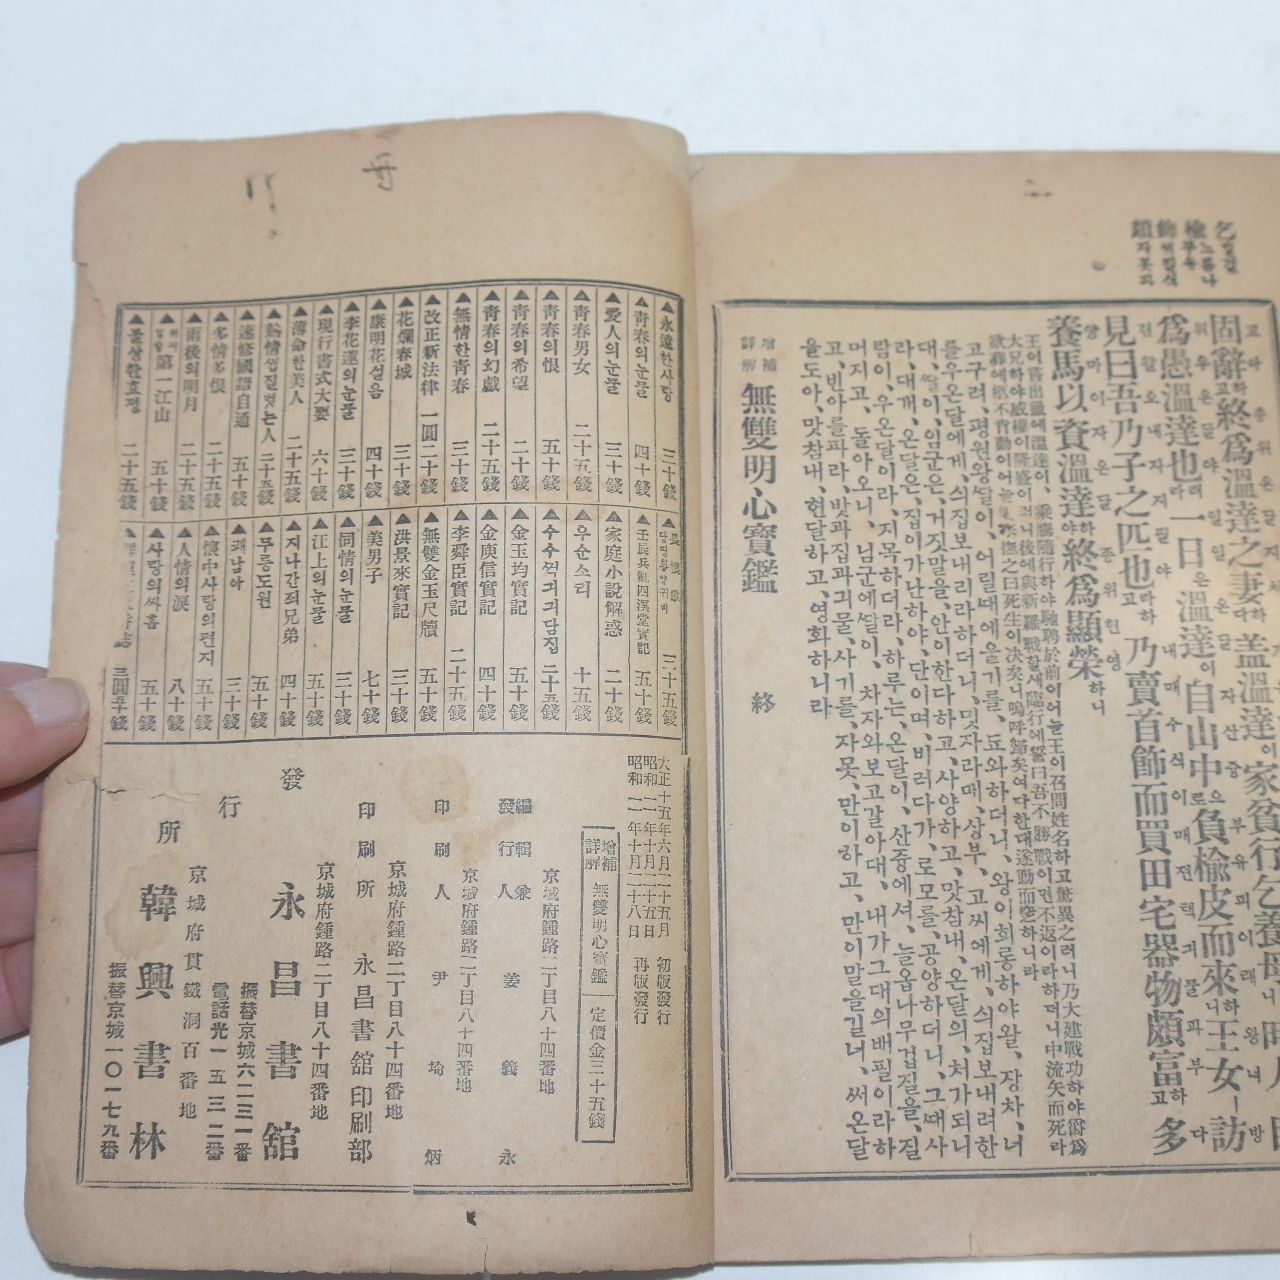 乞 빌걸
楡 느릅나무유
飾 꾸밀식
顔
固辭하고 終爲溫達之妻하다 盖溫達이 家貧行乞養母
爲愚溫達也라러 一日은 溫達이 自山中으로 負楡皮而來니하 王女ㅣ訪
見曰吾乃子之匹也라하고 乃賣首飾而買田宅器物頗富하고 多
養馬以資溫達야하 終爲顯榮하니
고구려, 평원왕, 딸이, 어릴때에울기를, 됴와하더니, 왕이희롱하야왈, 장차, 너
를우온달에게, 싀집보내리라하더니, 밋자라매, 상부, 고씨에게, 싀집보내려한
대, 딸이, 임군은, 거짓말을, 안이한다하고, 사양하고, 맛참내, 온달의, 처가되니
라, 대개, 온달은, 집이가난하야, 단이며, 비러다가, 로모를, 공양하더니, 그때사
람이, 우온달이라, 지목하더라, 하루는, 온달이, 산중에셔, 늘옵나무겁질을, 질
머지고, 돌아오니, 님군에딸이, 차자와보고갈아대, 내가그대의배필이라하
고, 반아를파라, 밧과집과긔물, 사기를, 자못, 만이하고, 만이말을길너, 써온달
을도아, 맛참내, 현달하고, 영화하니라
增補詳解 無雙明心寶鑑 終
▲永遠한사랑 三十錢
▲靑春의눈물 四十錢
▲愛人의눈물 三十錢
▲靑春男女 二十五錢
▲靑春의恨 五十錢
▲靑春의希望 二十錢
▲靑春의幻戲 二十五錢
▲無情한靑春 三十錢
▲改正新法律 一圓二十錢
▲花爛春城 三十錢
▲康明花셜음 四十錢
▲李花蓮의눈물 三十錢
▲現行書式大要 六十錢
▲薄命한美人 二十五錢
▲熱情껍질벗는人 二十五錢
▲速修國語自通 五十錢
▲多情多恨 二十五錢
▲雨後의明月 二十五錢
▲第一江山 五十錢
▲불상한효졍 二十五錢
▲長恨歌 당명황양귀비 三十五錢
▲壬辰兵亂四溟堂實記 五十錢
▲家庭小說解惑 二十五錢
▲우슌소리 十五錢
▲수수꺽긔긔담집 二十五錢
▲金玉均實記 五十錢
▲金庾信實記 四十錢
▲李舜臣實記 二十五錢
▲無雙金玉尺牘 五十錢
▲洪景來實記 三十錢
▲美男子 七十錢
▲同情의눈물 三十錢
▲江上의눈물 五十錢
▲지나간죄兄弟 四十錢
▲무릉도원 五十錢
▲쾌남아 三十錢
▲懷中사랑의편지 五十錢
▲人情의淚 八十錢
▲사랑의싸홈 五十錢
三圓五十錢
大正十五年六月二十五日 初版發行
昭和二年十月二十五日
昭和二年十月二十八日 再版發行
增補詳解 無雙明心寶鑑 定價金三十五錢
京城府鍾路二丁目八十四番地
編輯兼發行人 姜義永
京城府鍾路二丁目八十四番地
印刷人 尹埼炳
京城府鍾路二丁目八十四番地
印刷所 永昌書舘印刷部
京城府鍾路二丁目八十四番地
發行所 永昌書舘
振替京城六二三一番
電話光一五三二番
京城府貫鐵洞百番地
韓興書林
振替京城一〇一七九番